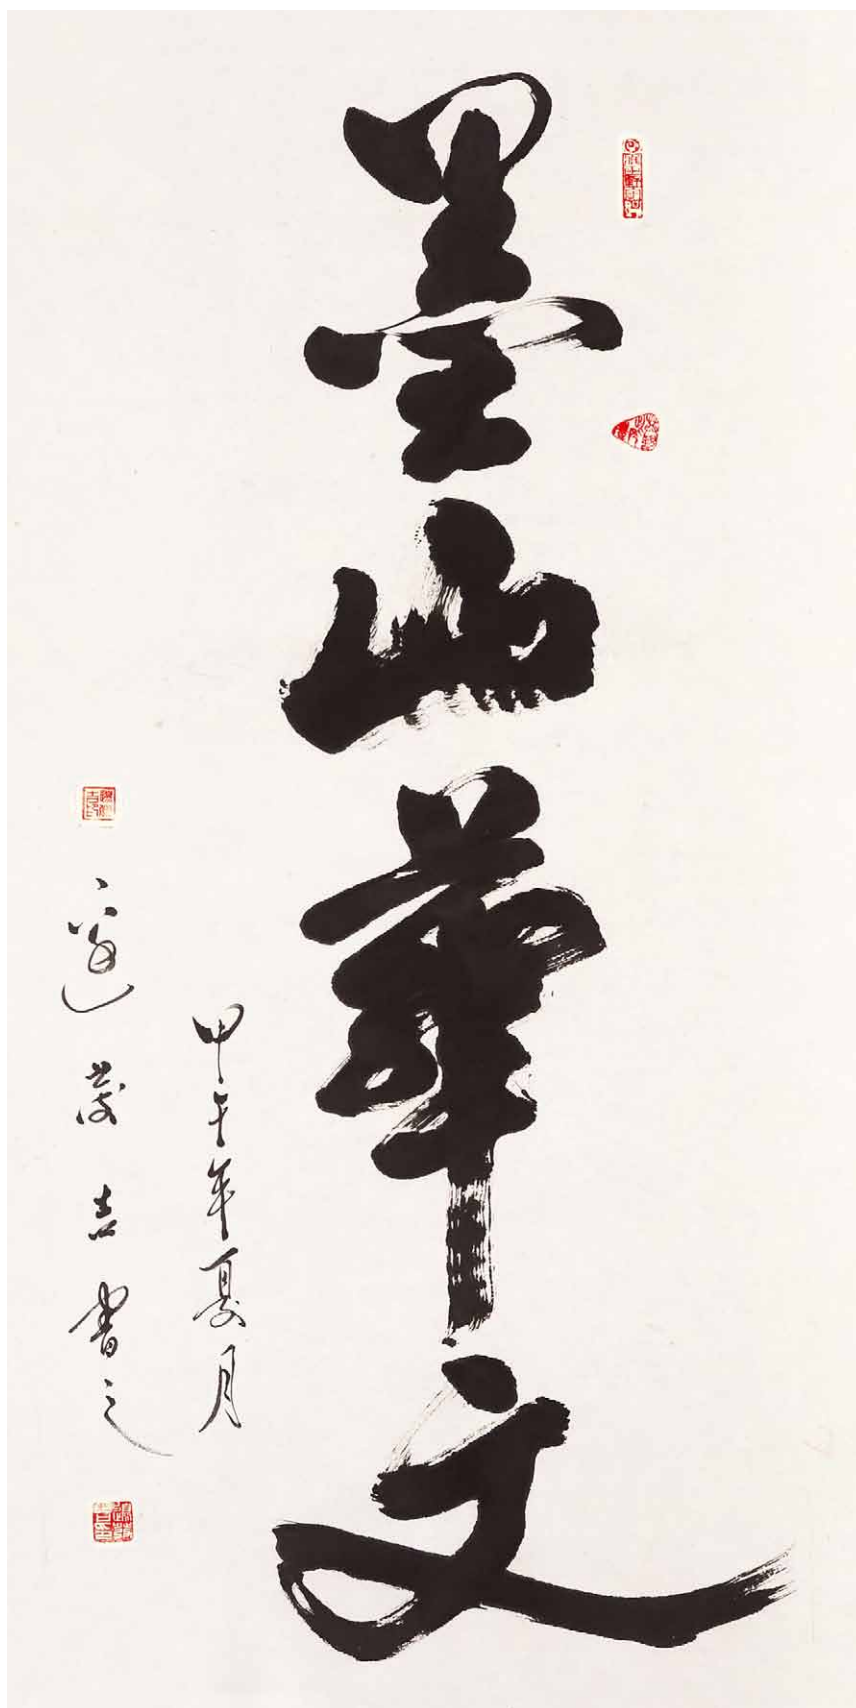 墨山華文
甲午年夏月
茂吉書之